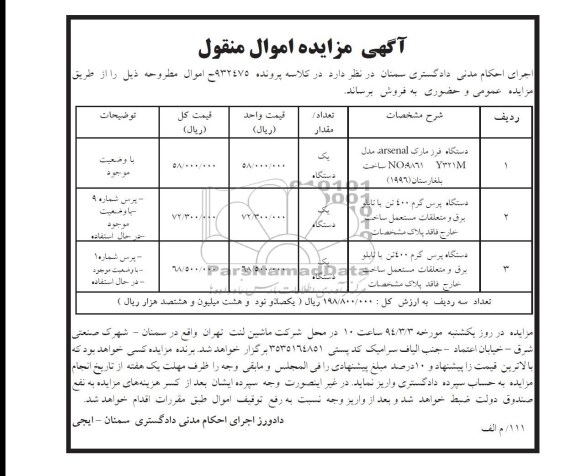 آگهی مزایده اموال منقول
اجرای احکام مدنی دادگستری سمنان در نظر دارد در کلاسه پرونده ۹۳۲۴۷۵ح اموال مطروحه ذیل را از طریق
مزایده عمومی و حضوری به فروش برساند.
ردیف شرح مشخصات تعداد/ مقدار قیمت واحد (ریال) قیمت کل (ریال) توضیحات
۱ دستگاه فرز مارک arsenal، مدل یک دستگاه ۵۸/۰۰۰/۰۰۰ ۵۸/۰۰۰/۰۰۰ با وضعیت موجود
Y۳۲۱M NO:۹۸۶۱ ساخت
بلغارستان(۱۹۹۶)
۲ دستگاه پرس گرم ۴۰۰ تن با تابلو یک دستگاه ۷۲/۳۰۰/۰۰۰ ۷۲/۳۰۰/۰۰۰ -پرس شماره ۹
برق و متعلقات مستعمل ساخت -باوضعیت موجود
خارج فاقد پلاک مشخصات -در حال استفاده
۳ دستگاه پرس گرم ۴۰۰تن با تابلو یک دستگاه ۶۸/۵۰۰/۰۰۰ ۶۸/۵۰۰/۰۰۰ -پرس شماره۱
برق و متعلقات مستعمل ساخت -با وضعیت موجود
خارج فاقد پلاک مشخصات -در حال استفاده
تعداد سه ردیف به ارزش کل : ۱۹۸/۸۰۰/۰۰۰ ریال ( یکصدو نود و هشت میلیون و هشتصد هزار ریال )
ParsNamadData
مزایده در روز یکشنبه مورخه ۹۴/۳/۳ ساعت ۱۰ در محل شرکت ماشین لنت تهران واقع در سمنان – شهرک صنعتی
شرق – خیابان اعتماد – جنب الیاف سرامیک کد پستی ۳۵۳۵۱۶۴۸۵۱ برگزار خواهد شد. برنده مزایده کسی خواهد بود که
بالاترین قیمت را پیشنهاد و ۱۰درصد مبلغ پیشنهادی را فی المجلس و مابقی وجه را ظرف مهلت یک هفته از تاریخ انجام
مزایده به حساب سپرده دادگستری واریز نماید. در غیر اینصورت وجه سپرده ایشان بعد از کسر هزینه‌های مزایده به نفع
صندوق دولت ضبط خواهد شد و بعد از واریز وجه نسبت به رفع توقیف اموال طبق مقررات اقدام خواهد شد.
دادورز اجرای احکام مدنی دادگستری سمنان – ایجی
۱۱۱/ م الف